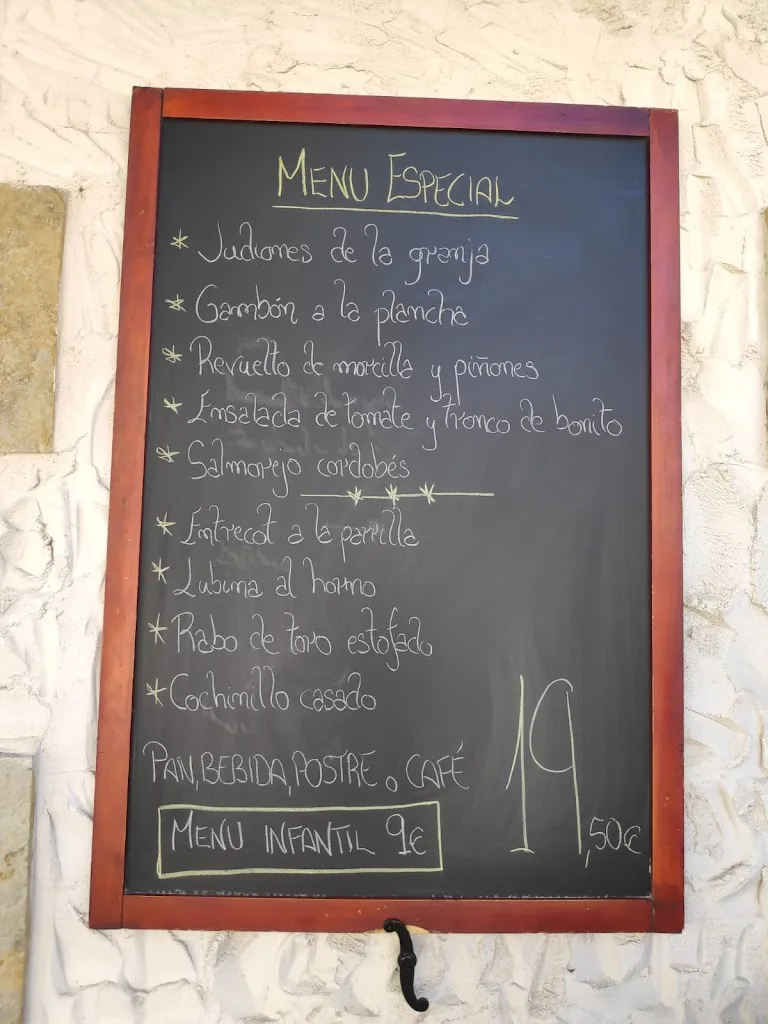 MENU ESPECIAL
* Judiones de la granja
* Gambón a la plancha
* Revuelto de morcilla y piñones
* Ensalada de tomate y tronco de bonito
* Salmorejo cordobés
* Entrecot a la parrilla
* Lubina al horno
* Rabo de toro estofado
* Cochinillo casado
PAN, BEBIDA, POSTRE o CAFÉ
19,50€
MENU INFANTIL 9€